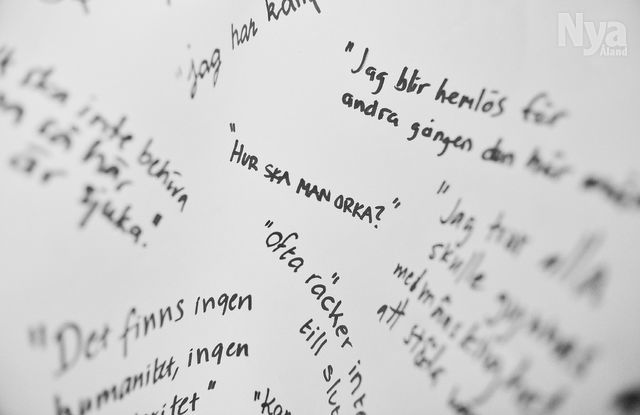 Nya
Åland
jag har kämp
"Jag blir hemlös för
andra gången den här
ska inte behöva
så här
är sjuka."
"HUR SKA MAN ORKA?"
"Jag tror alla
skulle gynnas
medmänsklighet
att stötta
"Ofta räcker inte
till slut
"Det finns ingen
humanitet, ingen